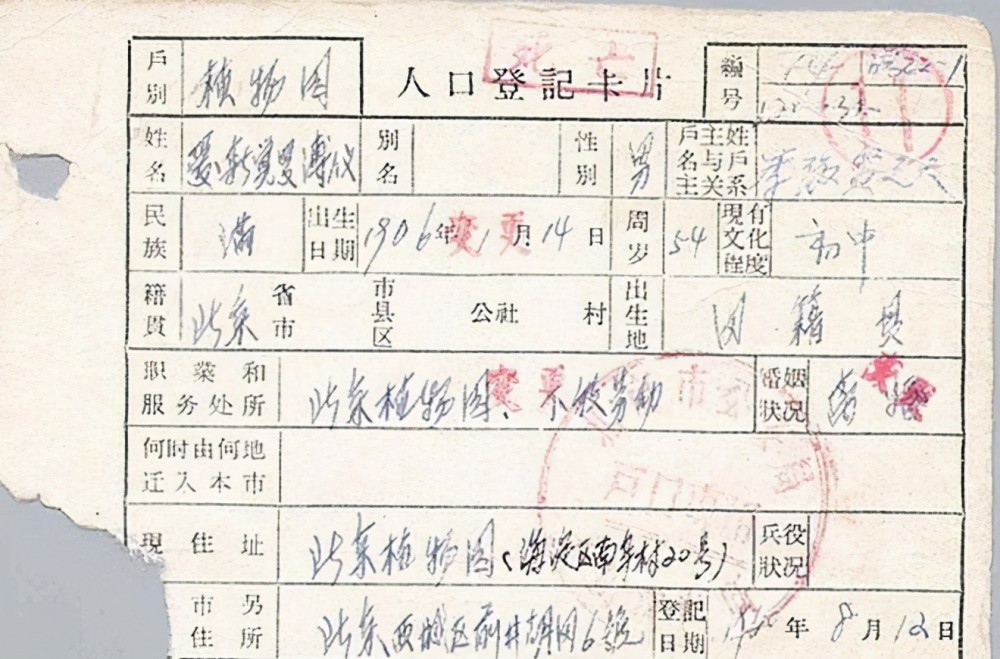 死亡
戶別 植物园 人口登記卡片 編号
姓名 爱新覚罗溥仪 別名 性別 男 戶主姓名与戶主关系
民族 满 出生日期 1906年1月14日 变更 周岁 54 現有文化程度 初中
籍貫 北京 省市 市县区 公社 村 出生地 同籍貫
职业和服务处所 北京植物园、 劳动 变更 婚姻狀况
何时由何地迁入本市
現住址 北京植物园(海淀区南辛村20号) 兵役狀况
市另住所 北京西城区前井胡同6號 登記日期 1960年8月12日